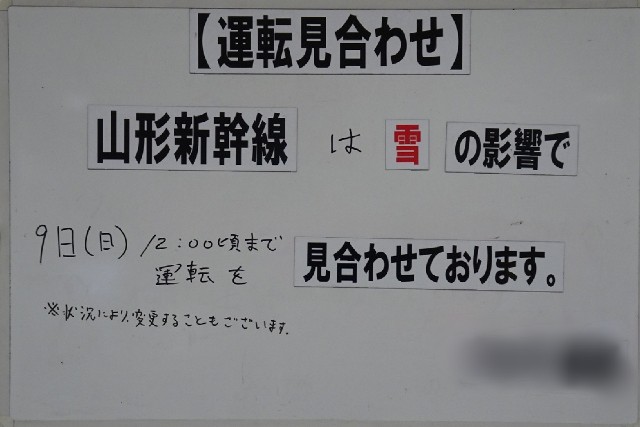 【運転見合わせ】
山形新幹線 は 雪 の影響で
9日(日) 12:00頃まで
運転を 見合わせております。
※状況により、変更することもございます。